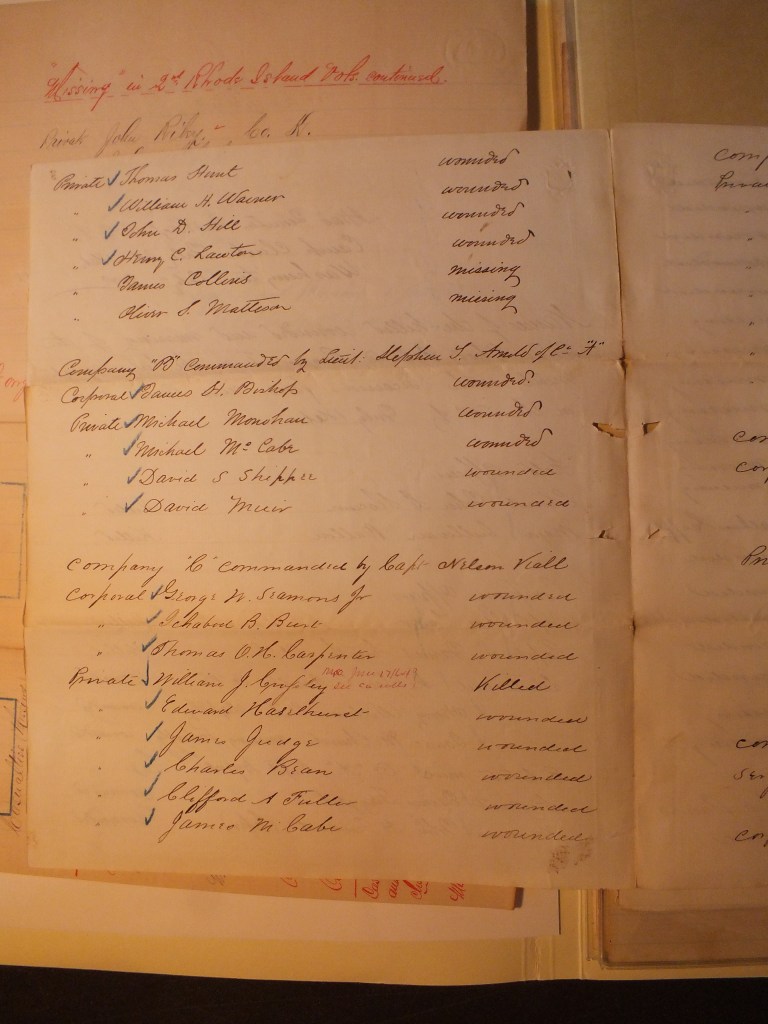 "Missing" in 2d Rhode Island Vols. continued.
Private John Riley, Co. K.
Private Thomas Hunt wounded
" William H. Warner wounded
" John D. Hill wounded
" Henry C. Lawton wounded
" James Collins missing
" Oliver S. Matteson missing
Company "B" commanded by Lieut. Stephen T. Arnold of Co "A"
Corporal James H. Bishop wounded.
Private Michael Monohan wounded
" Michael McCabe wounded
" David S Shippee wounded
" David Muir wounded
Company "C" commanded by Capt Nelson Viall
Corporal George W. Seamons Jr wounded
" Ichabod B. Burt wounded
" Thomas O. H. Carpenter wounded
Private William J. Killed
" Edward Haselhurst wounded
" James Judge wounded
" Charles Bean wounded
" Clifford A Fuller wounded
" James McCabe wounded